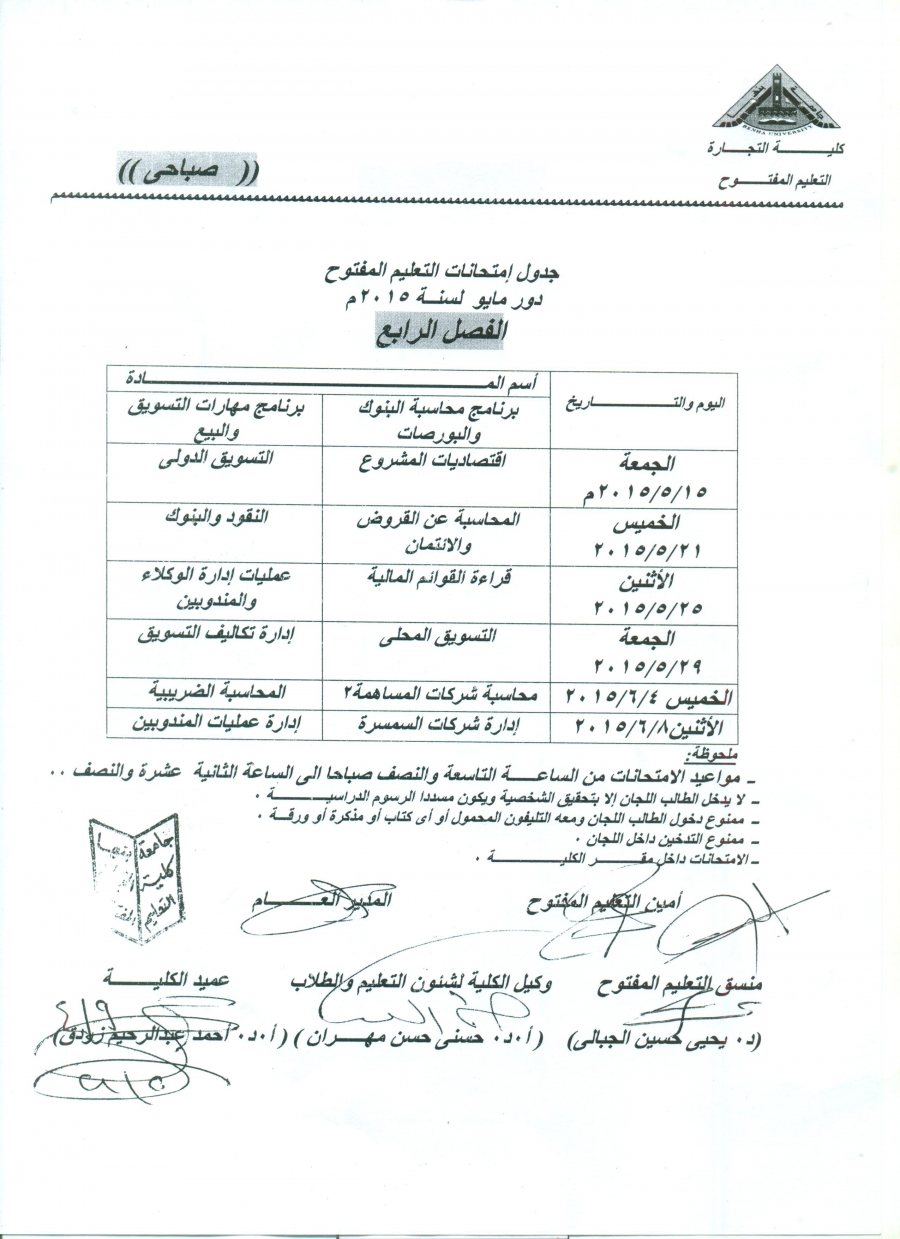 جامعة بنها
BENHA UNIVERSITY
كليــة التجـارة
التعليم المفتــوح
(( صباحى ))
جدول إمتحانات التعليم المفتوح
دور مايو لسنة ٢٠١٥م
الفصل الرابع
اليوم والتــاريخ
أسم المــادة
برنامج محاسبة البنوك والبورصات
برنامج مهارات التسويق والبيع
الجمعة ٢٠١٥/٥/١٥م
اقتصاديات المشروع
التسويق الدولى
الخميس ٢٠١٥/٥/٢١
المحاسبة عن القروض والائتمان
النقود والبنوك
الأثنين ٢٠١٥/٥/٢٥
قراءة القوائم المالية
عمليات إدارة الوكلاء والمندوبين
الجمعة ٢٠١٥/٥/٢٩
التسويق المحلى
إدارة تكاليف التسويق
الخميس ٢٠١٥/٦/٤
محاسبة شركات المساهمة٢
المحاسبة الضريبية
الأثنين٢٠١٥/٦/٨
إدارة شركات السمسرة
إدارة عمليات المندوبين
ملحوظة:
ـ مواعيد الامتحانات من الساعــة التاسعة والنصف صباحا الى الساعة الثانية عشرة والنصف ..
ـ لا يدخل الطالب اللجان إلا بتحقيق الشخصية ويكون مسددا الرسوم الدراسيــة ٠
ـ ممنوع دخول الطالب اللجان ومعه التليفون المحمول أو أى كتاب أو مذكرة أو ورقة ٠
ـ ممنوع التدخين داخل اللجان ٠
ـ الامتحانات داخل مقــر الكليــة ٠
جامعة بنها
كلية
التعليم
أمين التعليم المفتوح
المدير العــام
منسق التعليم المفتوح
وكيل الكلية لشئون التعليم والطلاب
عميد الكليــة
(د٠ يحيى حسين الجبالى)
(أ٠د٠ حسنى حسن مهــران )
(أ٠د٠ أحمد عبدالرحيم زردق)